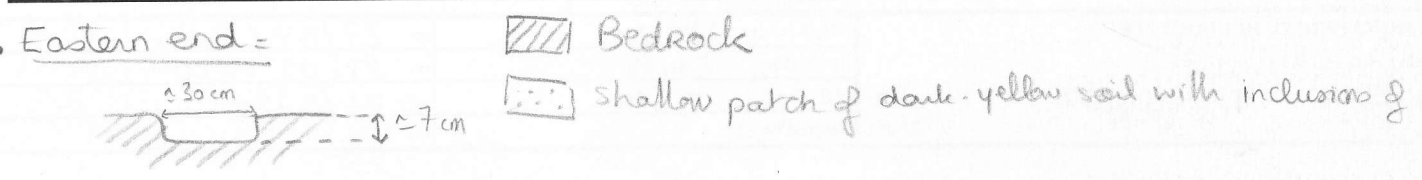 . Eastern end =
Bedrock
≃ 30 cm
≃ 7 cm
shallow patch of dark-yellow soil with inclusions of